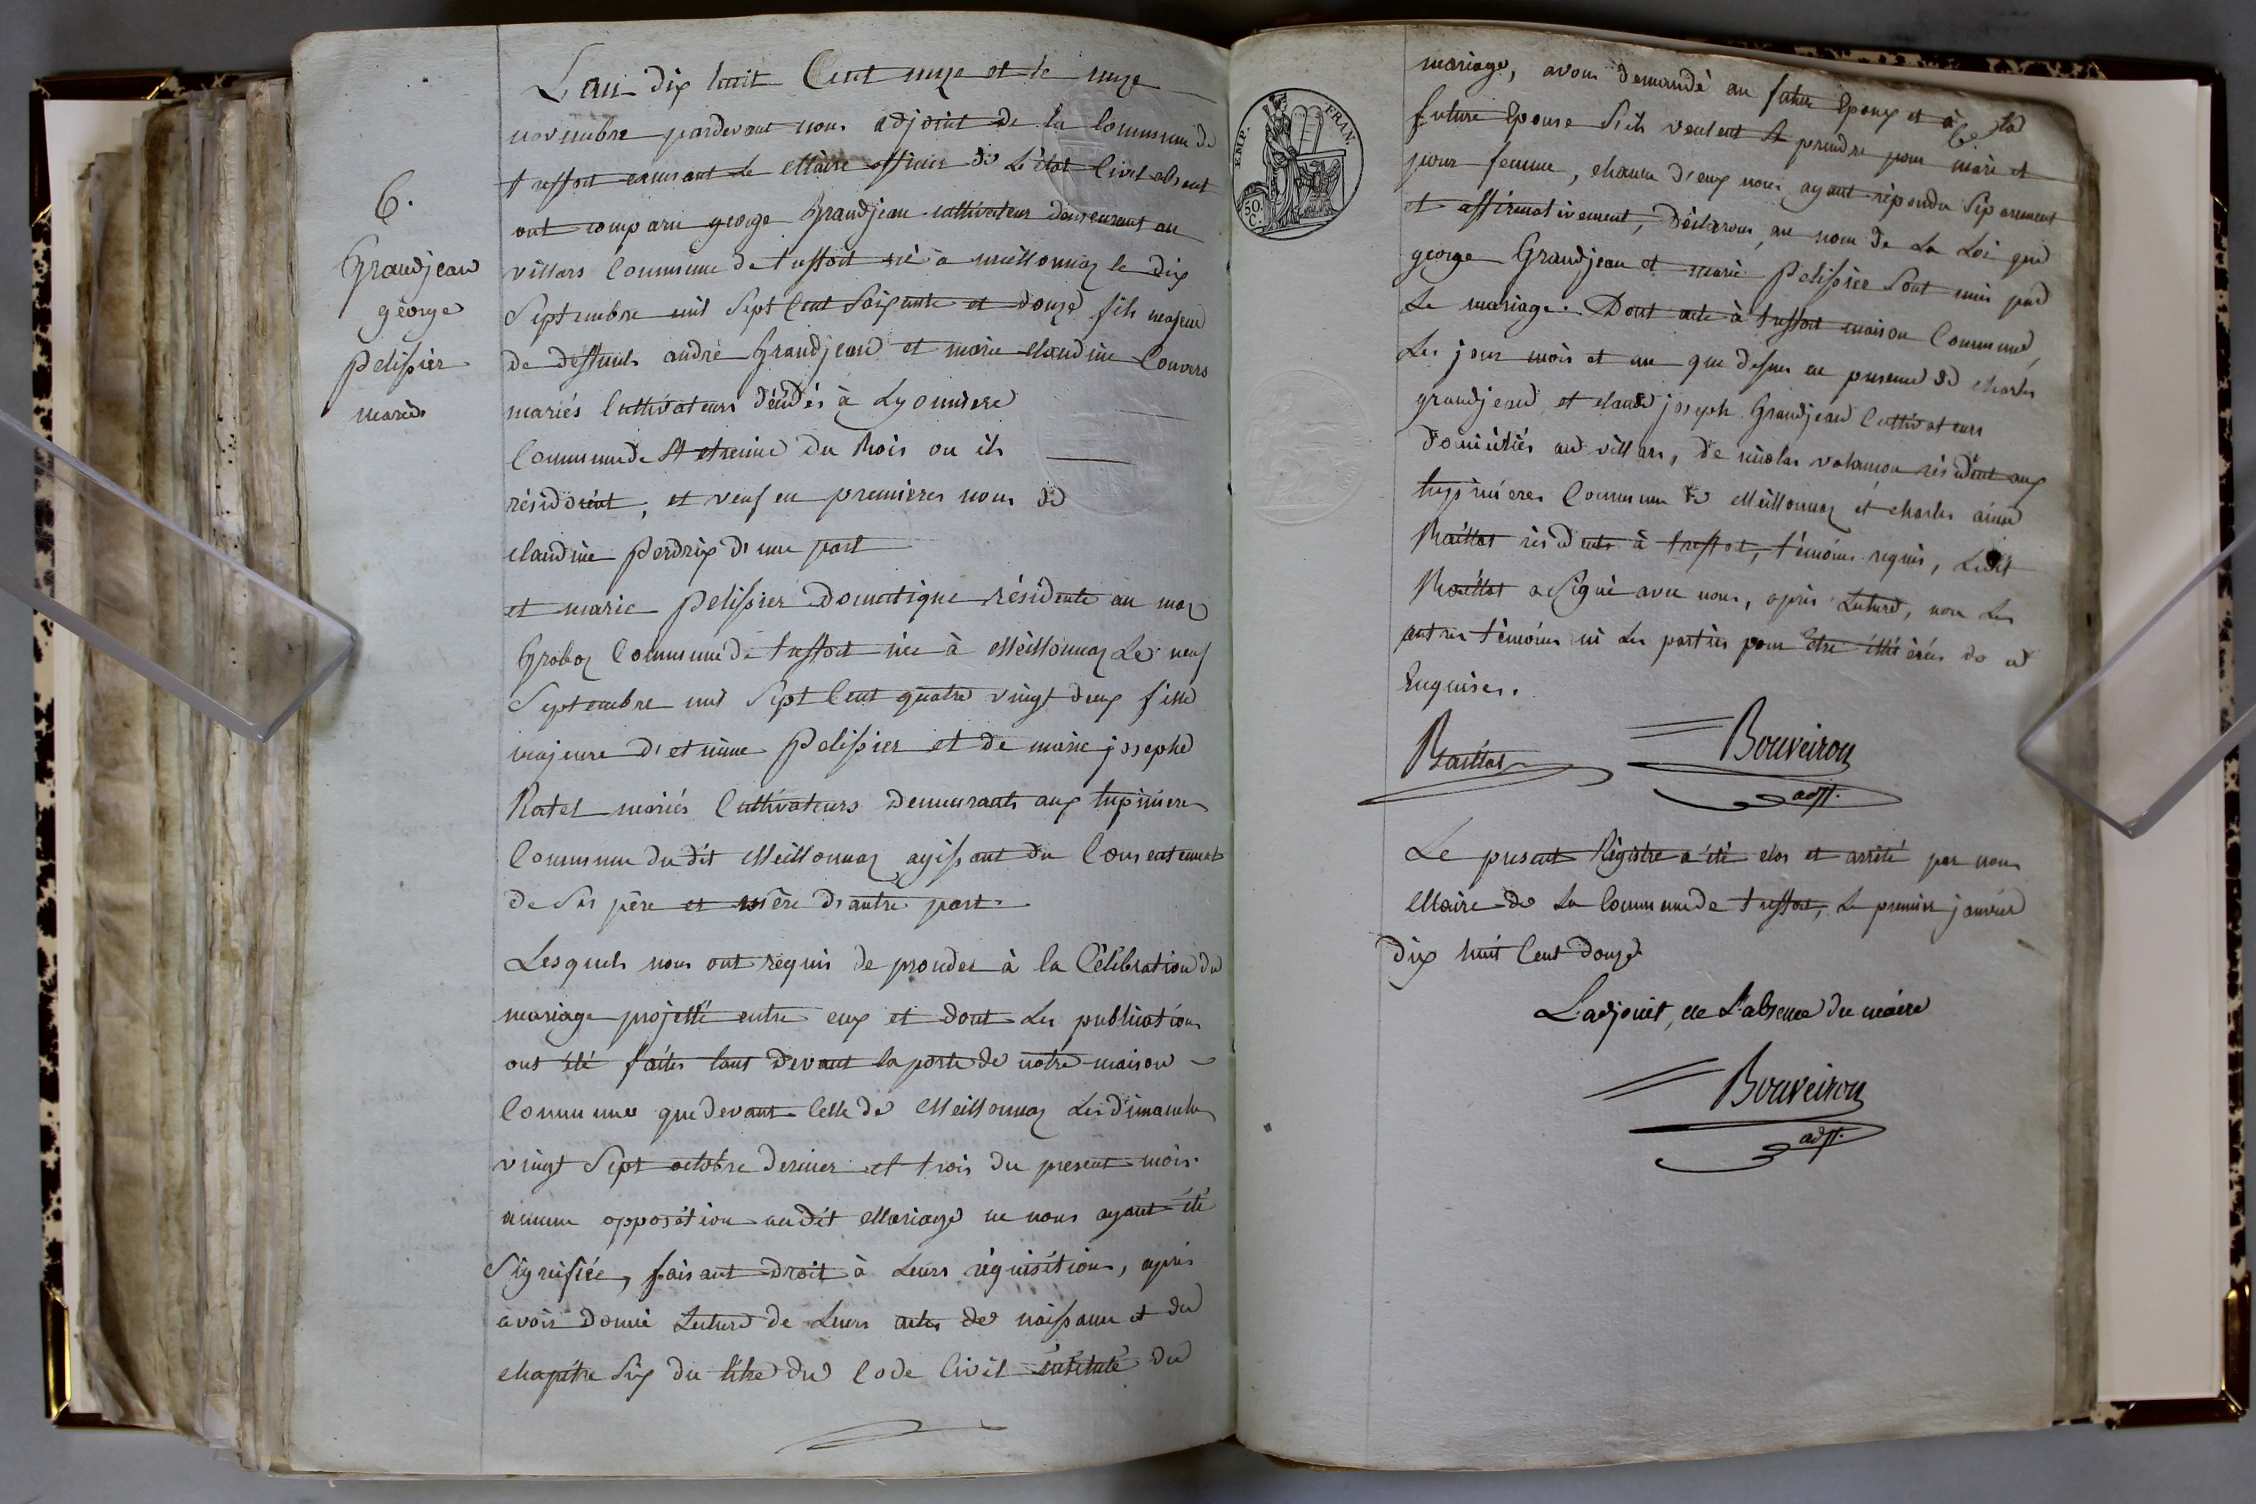 6.
Grandjean
george
Pelissier
marie
L'an dix huit Cent onze et le onze
novembre pardevant nous adjoint de la Commune de
treffort exerçant le Maire officier de L'état Civil absent
ont comparu george Grandjean cultivateur demeurant au
villars Commune de treffort né à meillonnaz le dix
Septembre mil Sept Cent Soixante et douze fils majeur
de deffunts andré Grandjean et marie claudine Convers
mariés Cultivateurs décédés à Lyonniere
Commune de St etienne du Bois ou ils
résidoient, et veuf en premieres noces de
claudine Perdrix d'une part
et marie Pelissier Domestique résidente au maz
Groboz Commune de treffort née à Meillonnaz Le neuf
Septembre mil Sept Cent quatre vingt deux fille
majeure d'etienne Pelissier et de marie josephe
Ratel mariés Cultivateurs Demeurants aux tupinieres
Commune du dit Meillonnaz agissant du Consentement
de Ses père et mère d'autre part.
Lesquels nous ont requis de proceder à la Célébration du
mariage projetté entre eux et dont Les publications
ont été faites tant devant la porte de notre maison
Commune que devant Celle de Meillonnaz Les dimanches
vingt Sept octobre dernier et trois du present mois.
aucune opposition audit Mariage ne nous ayant été
Signifiée, faisant droit à Leurs réquisitions, après
avoir donné Lecture de Leurs actes de naissance et du
chapitre Six du titre du Code Civil intitulé du
EMP. FRAN.
50. C.
mariage, avons demandé au futur Epoux et à la
future Epouse S'ils veulent Se prendre pour mari et
pour femme, chacun d'eux nous ayant répondu Séparement
et affirmativement, Déclarons, au nom de La Loi que
george Grandjean et marie Pelissier Sont unis par
Le mariage. Dont acte à treffort maison Commune,
Les jour mois et an que dessus en presence de charles
grandjean et claude joseph Grandjean Cultivateurs
domiciliés au villars, de nicolas résident aux
tupinieres Commune de Meillonnaz et charles aimé
Baillat résidents à treffort, témoins requis, Ledit
Baillat a Signé avec nous, après Lecture, non Les
autres témoins ni Les parties pour Etre illiterés de ce
Enquises.
Baillat
Bouveiron
adjt.
Le present Régistre a été clos et arrêté par nous
Maire de La Commune de treffort, Le premier janvier
dix huit Cent douze
L'adjoint, en L'absence du maire
Bouveiron
adjt.